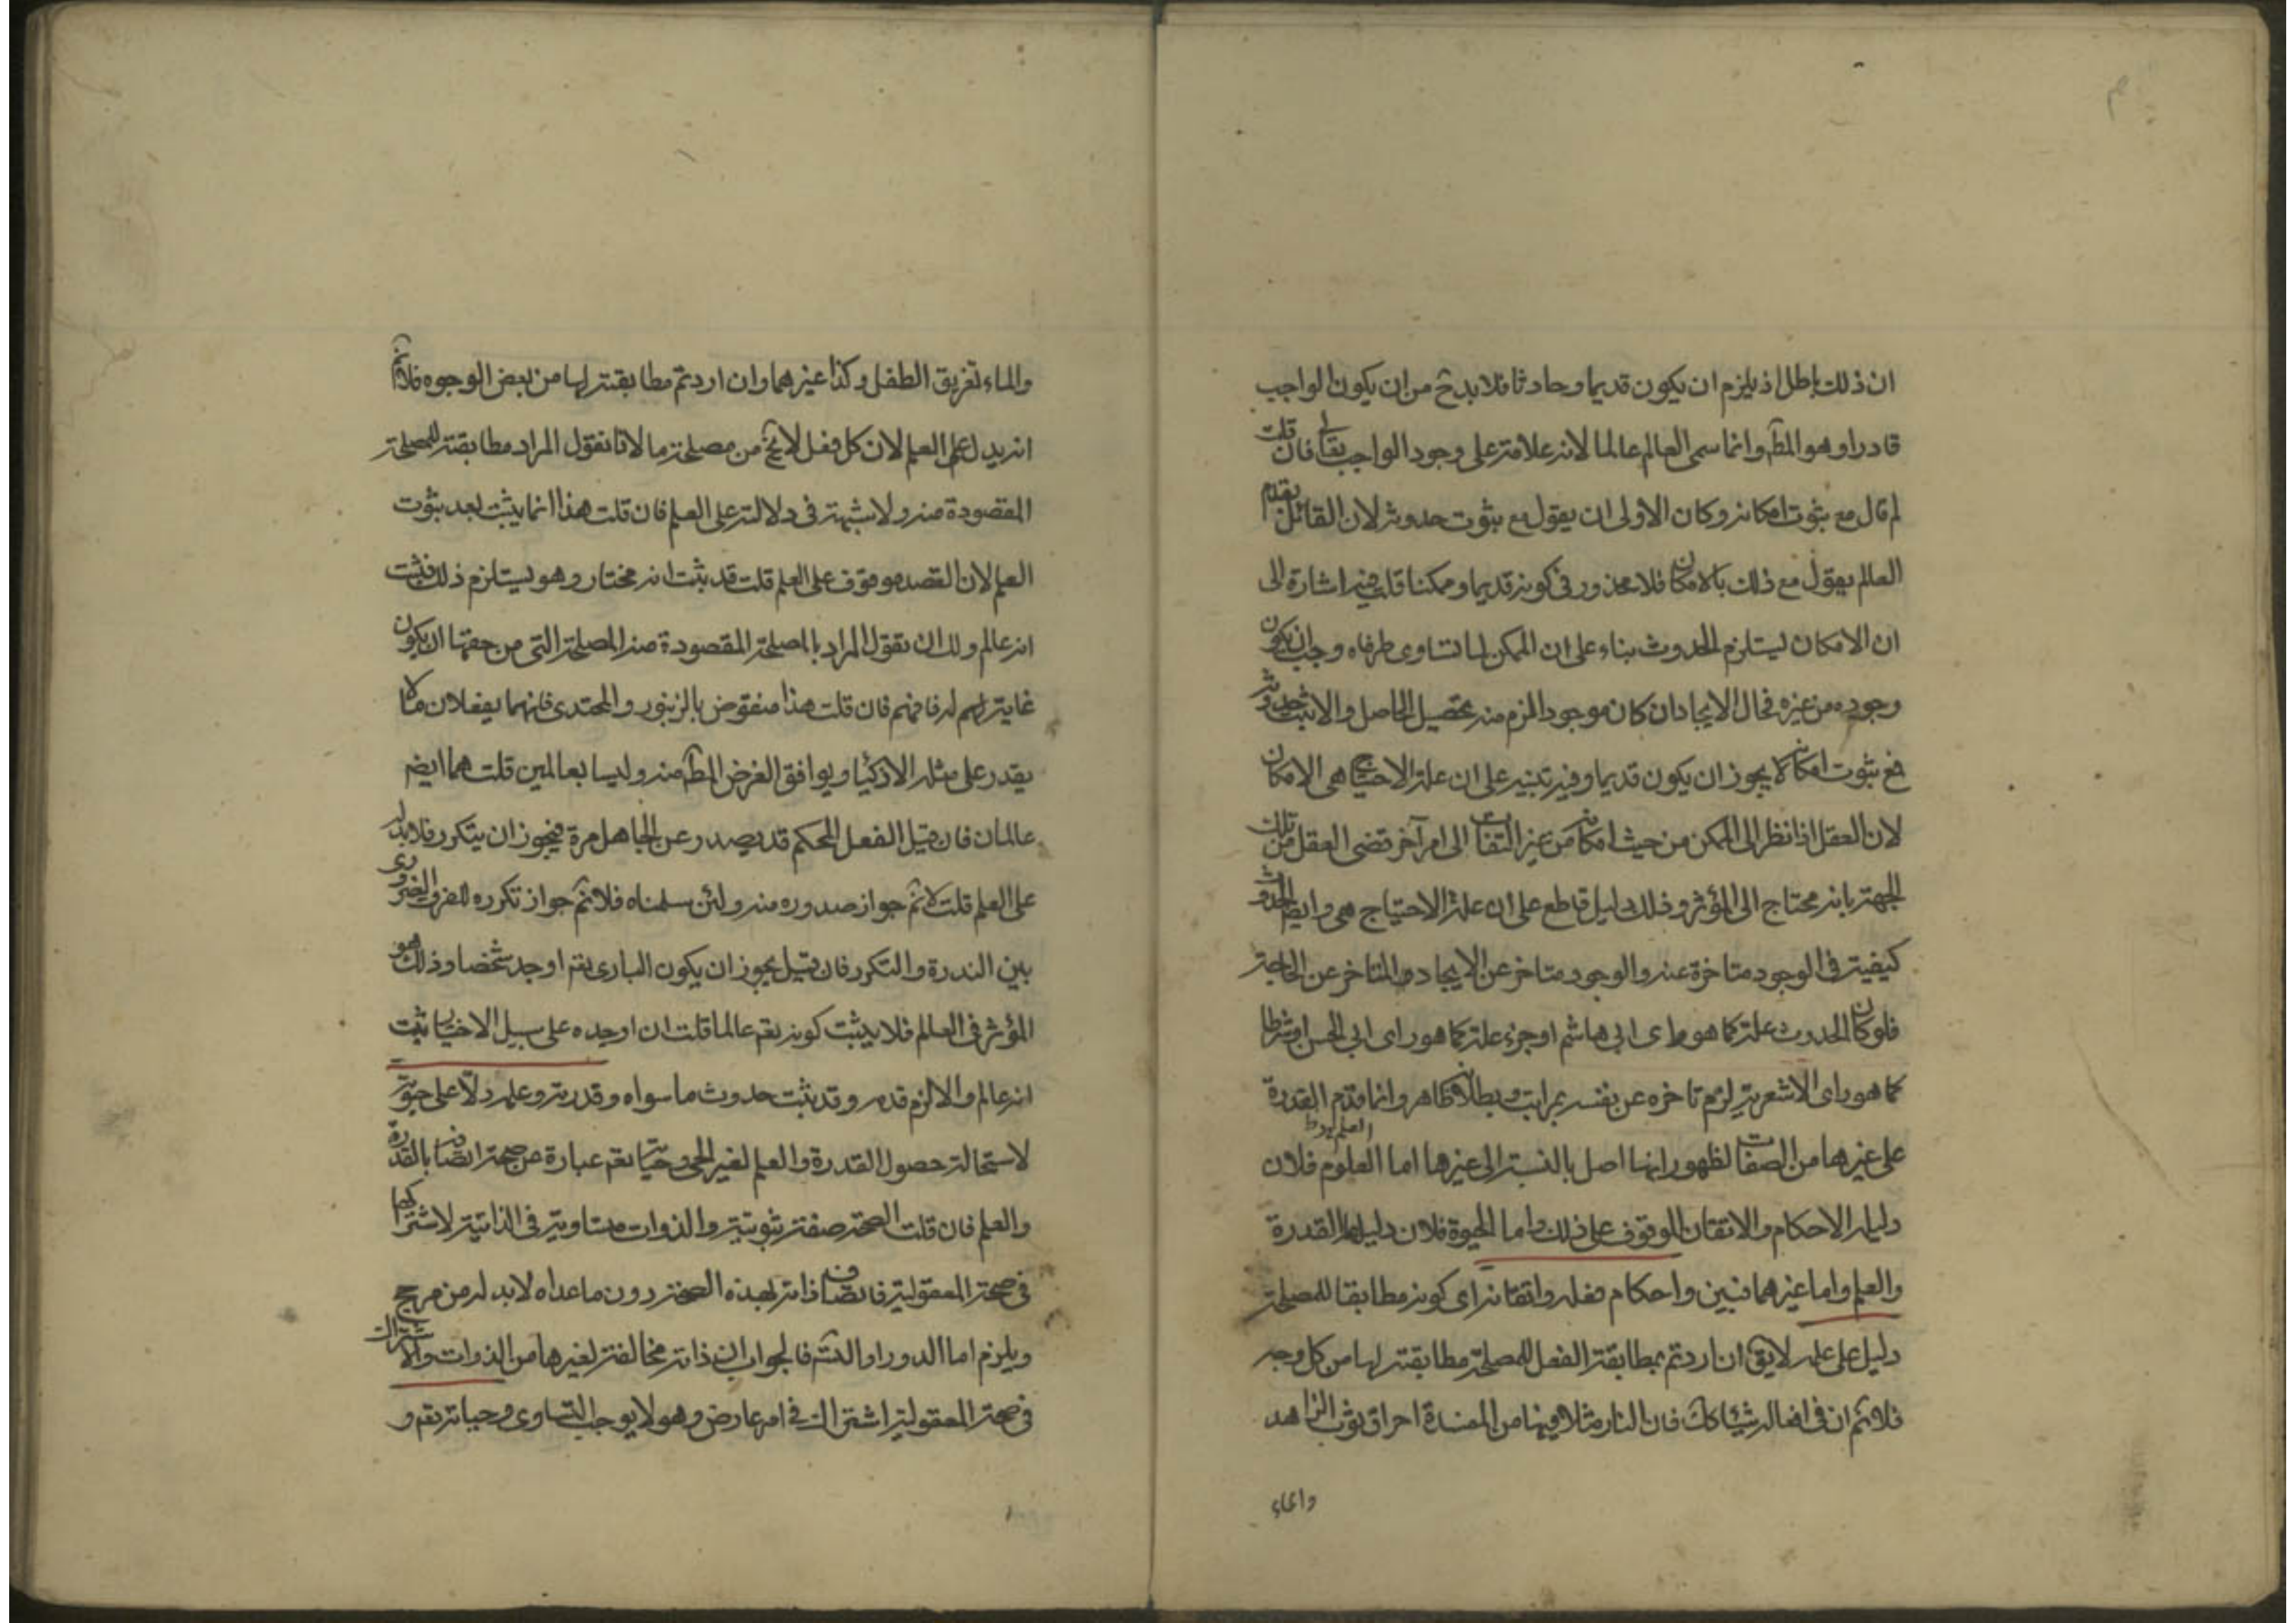 ان ذلك باطل اذ يلزم ان يكون قديما وحادثا فلا بد ح من ان يكون الواجب
قادرا وهو المط وانما سمى العالم عالما لانه علامة على وجود الواجب تعالى فان قلت
لم قال مع ثبوت امكانه وكان الاولى ان يقول مع ثبوت حدوثه لان القائل بقدم
العالم يقول مع ذلك بالامكان فلا محذور في كونه قديما وممكنا قلت فيه اشارة الى
ان الامكان يستلزم الحدوث بناء على ان الممكن لما تساوى طرفاه وجب ان يكون
وجوده من غيره فحال الايجاد ان كان موجودا لزم منه تحصيل الحاصل والا ثبت حدوثه
فمع ثبوت امكانه لا يجوز ان يكون قديما وفيه تنبيه على ان علة الاحتياج هى الامكان
لان العقل اذا نظر الى الممكن من حيث امكانه من غير التفات الى امر آخر قضى العقل من تلك
الجهة بانه محتاج الى المؤثر وذلك دليل قاطع على ان علة الاحتياج هى وايضا الحدوث
كيفية في الوجود متاخرة عنه والوجود متاخر عن الايجاد والمتاخر عن الحاجة
فلو كان الحدوث علة كما هو راى ابى هاشم او جزء علة كما هو راى ابى الحسن او شرطا
كما هو راى الاشعرية لزم تاخره عن نفسه بمراتب وبطلانه ظاهر وانما قدم القدرة
على غيرها من الصفات لظهور انها اصل بالنسبة الى غيرها اما العلوم فلان
العلم
دليله الاحكام والاتقان الموقوف على ذلك واما الحيوة فلان دليلها القدرة
والعلم واما غيرهما فبين واحكام فعله واتقانه اى كونه مطابقا للمصلحة
دليل على علمه لا يق ان اردتم بمطابقة الفعل للمصلحة مطابقته لها من كل وجه
فلا نم ان في افعاله شيئا كك فان النار مثلا فيها من المفسدة احراق ثوب الزاهد
والماء
والماء تغريق الطفل وكذا غيرهما وان اردتم مطابقته لها من بعض الوجوه فلا نم
انه يدل على العلم لان كل فعل لا يخ من مصلحة ما لانا نقول المراد مطابقته للمصلحة
المقصودة منه ولا شبهة في دلالته على العلم فان قلت هذا انما يثبت بعد ثبوت
العلم لان القصد موقوف على العلم قلت قد ثبت انه مختار وهو يستلزم ذلك فثبت
انه عالم ولك ان تقول المراد بالمصلحة المقصودة منه المصلحة التى من حقها ان يكون
غاية لهم له فافهم فان قلت هذا منقوض بالزنبور والمحتدى فانهما يفعلان ما لا
يقدر على مثله الاذكيا ويوافق الغرض المط منه وليسا بعالمين قلت هما ايضا
عالمان فان قيل الفعل المحكم قد يصدر عن الجاهل مرة فيجوز ان يتكرر فلا يدل
على العلم قلت لا نم جواز صدوره منه ولئن سلمناه فلا نم جواز تكرره للفرق الضرورى
بين الندرة والتكرر فان قيل يجوز ان يكون البارى تعم اوجد شخصا وذلك هو
المؤثر في العالم فلا يثبت كونه تعم عالما قلت ان اوجده على سبيل الاختيار ثبت
انه عالم والا لزم قدمه وقد ثبت حدوث ما سواه وقدرته وعلمه دلا على حيوته
لاستحالة حصول القدرة والعلم لغير الحى وحياته تعم عبارة عن صحة اتصافه بالقدرة
والعلم فان قلت الصحة صفة ثبوتية والذوات متساوية في الذاتية لاشتراكها
في صحة المعقولية فاتصاف ذاته بهذه الصحة دون ما عداه لا بد له من مرجح
ويلزم اما الدور او التسم فالجواب ان ذاته مخالفة لغيرها من الذوات والاشتراك
في صحة المعقولية اشتراك في امر عارض وهو لا يوجب التساوى وحياته تعم و